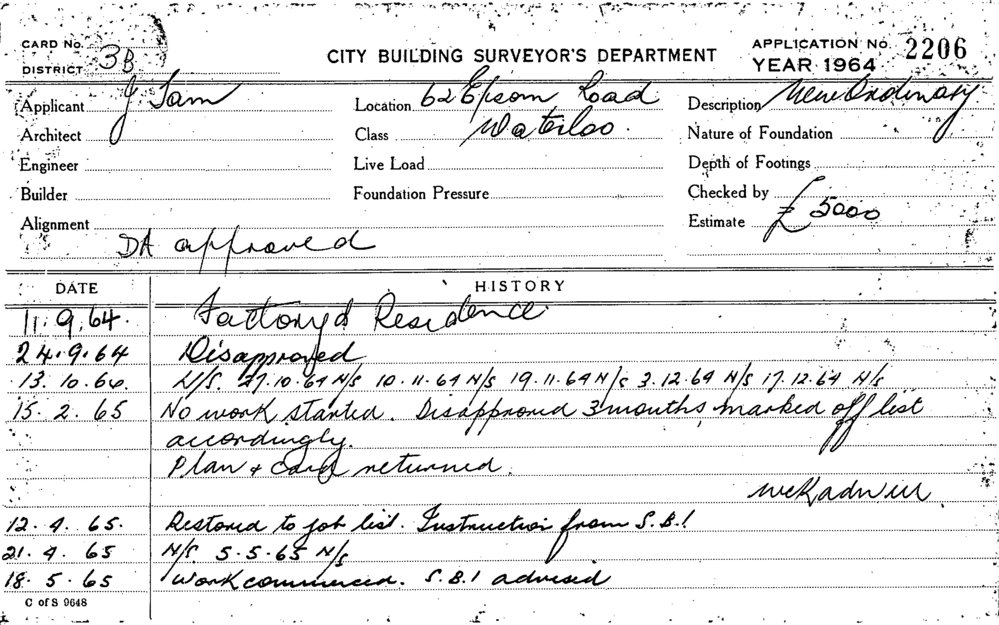 CARD No.
DISTRICT 3B
CITY BUILDING SURVEYOR'S DEPARTMENT
APPLICATION No. 2206
YEAR 1964
Applicant J Tam
Location 62 Epsom Road
Description New Ordinary
Architect
Class Waterloo.
Nature of Foundation
Engineer
Live Load
Depth of Footings
Builder
Foundation Pressure
Checked by
Alignment
Estimate £ 5000
DA approved
DATE HISTORY
11.9.64. Factory & Residence
24.9.64 Disapproved
13.10.64. N/S. 27.10.64 N/S 10.11.64 N/S 19.11.64 N/S 3.12.64 N/S 17.12.64 N/S
15.2.65 No work started. Disapproved 3 months marked off list
accordingly.
Plan & card returned.
12.4.65. Restored to job list. Instruction from S.B.I
21.4.65 N/S 5.5.65 N/S
18.5.65 Work commenced. S.B.I advised
C of S 9648